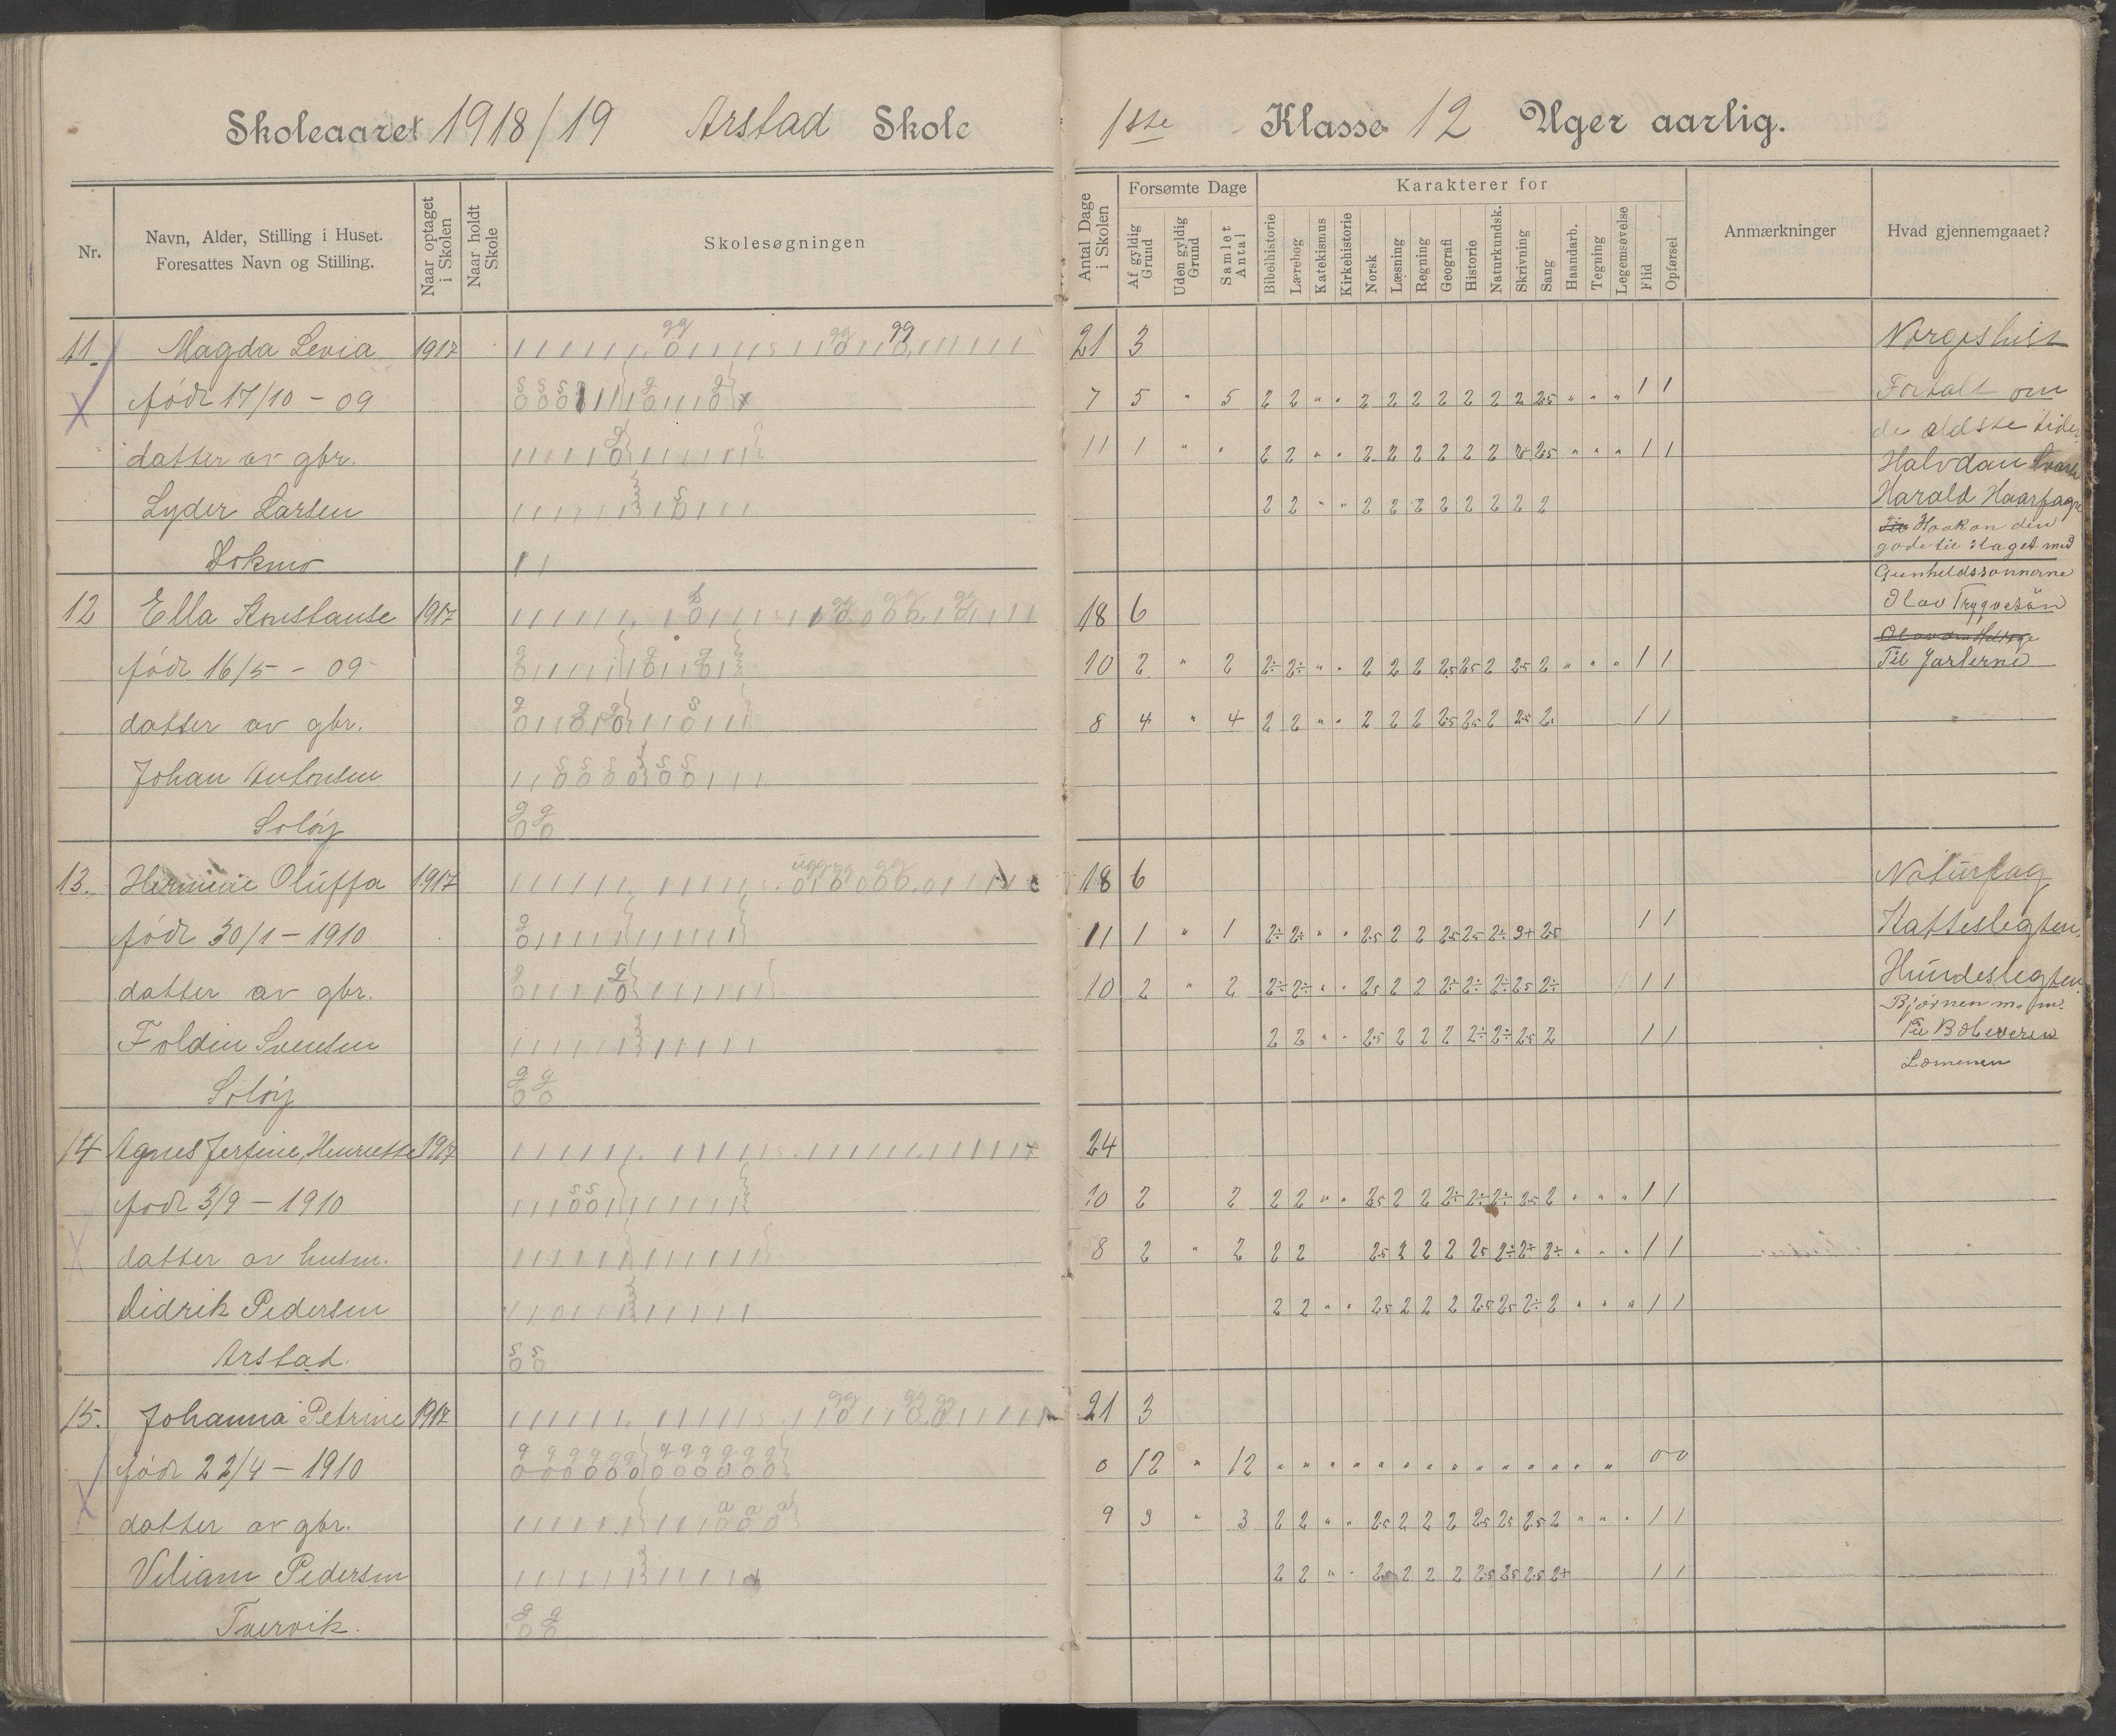 Skoleaaret 1918/19 Arstad Skole 1ste Klasse 12 Uger aarlig.
Nr.
Navn, Alder, Stilling i Huset.
Foresattes Navn og Stilling.
Naar optaget
i Skolen
Naar holdt
Skole
Skolesøgningen
Antal Dage
i Skolen
Forsømte Dage
Af gyldig
Grund
Uden gyldig
Grund
Samlet
Antal
Karakterer for
Bibelhistorie
Lærebog
Katekismus
Kirkehistorie
Norsk
Læsning
Regning
Geografi
Historie
Naturkundsk.
Skrivning
Sang
Haandarb.
Tegning
Legemsøvelse
Flid
Opførsel
Anmærkninger
Hvad gjennemgaaet?
11 Magda Levia 1917 21 3 Norgeshist
født 17/10 - 09 7 5 " 5 2 2 " " 2 2 2 2 2 2 2 2.5 " " " 1 1 Fortalt om
de ældste tider
datter av gbr. 11 1 " " 2 2 " " 2 2 2 2 2 2 2.5 " " " 1 1 Halvdan Svarte
Lyder Larsen 2 2 " " 2 2 2 2 2 2 2 2 Harald Haarfagre
Haakon den
gode til slaget med
Dokmo
Gunhildssønnerne
12 Ella Konstanse 1917 18 6 Olav Trygvesøn
Olav den Hellige
født 16/5 - 09 10 2 " 2 2÷ 2÷ " " 2 2 2 2.5 2.5 2 2.5 2 " " " 1 1 Til Jarlerne
datter av gbr. 8 4 " 4 2 2 " " 2 2 2 2.5 2.5 2 2.5 2 1 1
Johan Antonsen
Soløy
13. Hermine Oluffa 1917 18 6 Naturfag
født 30/1 - 1910 11 1 " 1 2÷ 2÷ " " 2.5 2 2 2.5 2.5 2÷ 3+ 2.5 1 1 Katteslegten,
datter av gbr. 10 2 " 2 2÷ 2÷ " " 2.5 2 2 2÷ 2÷ 2÷ 2.5 2÷ 1 1 Hundeslegten
Bjørnen m. m.
Foldin Svensen 2 2 " " 2.5 2 2 2 2÷ 2÷ 2.5 2 1 1 Til Bæveren
Lomenen
Soløy
14 Agnes Jersine, Henriette 1917 24
født 3/9 - 1910 10 2 2 2 2 " " 2.5 2 2 2÷ 2÷ 2÷ 2.5 2 " " " 1 1
datter av husm. 8 2 " 2 2 2 2.5 2 2 2 2.5 2÷ 2+ 2÷ " " " 1 1
Didrik Pedersen 2 2 " " 2.5 2 2 2 2.5 2.5 2÷ 2 " " " 1 1
Arstad.
15. Johanna Petrine 1917 21 3
født 22/4 - 1910 0 12 " 12 " " " " " " " " " " " " " " 0 0
datter av gbr. 9 3 " 3 2 2 " " 2.5 2 2 2 2.5 2.5 2.5 2 " " " 1 1
Viliam Pedersen 2 2 " " 2.5 2 2 2 2.5 2.5 2.5 2+ 1 1
Tvervik.